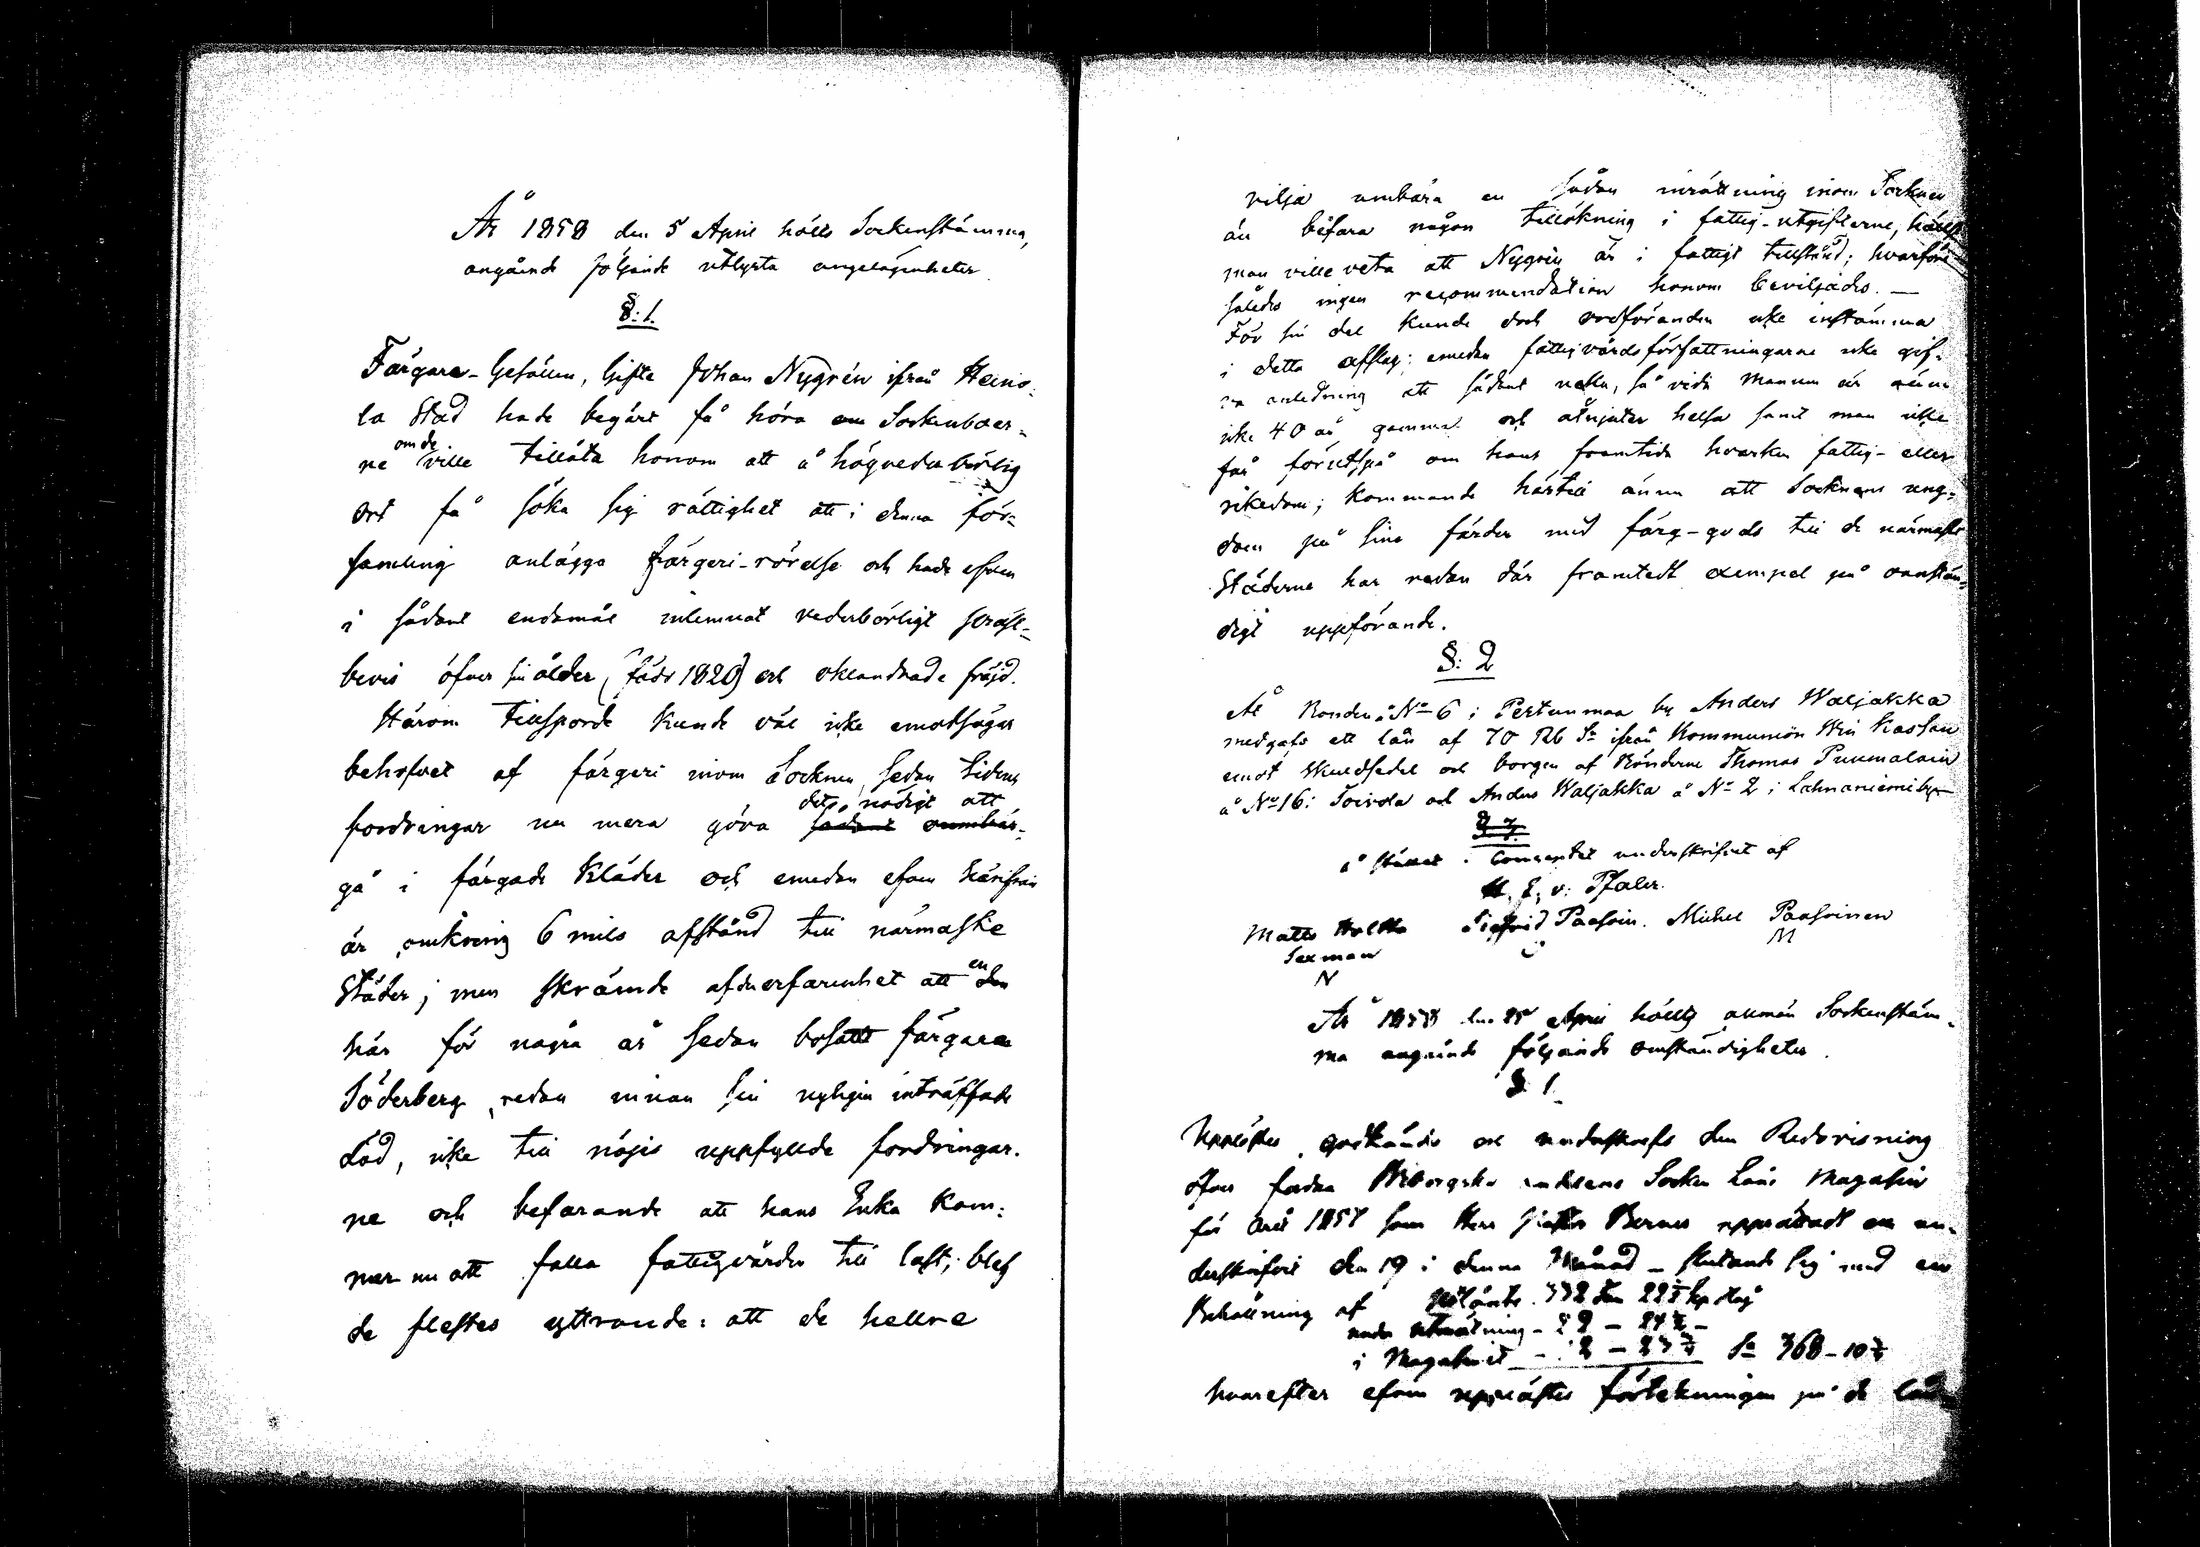 År 1858 den 5 April hölls Sockenstämma,
angående följande utlysta angelägenheter.
§: 1.
Färgare-Gesällen, Gifte Johan Nygrén ifrån Heino-
la Stad hade begärt få höra om Sockenboer-
om de
ne ville tillåta honom att å högvederbörlig
ort få söka sig rättighet att i denna för-
samling anlägga färgeri-rörelse och hade efven
i sådant endamål inlemnat vederbörligt präst-
bevis öfver sin ålder (född 1820) och oklandrade fräjd.
Härom tillsporde kunde väl icke emotsägas
behofvet af färgeri inom Socknen, sedan tidens
det nödigt att
fordringar nu mera göra sådant oumbär-
gå i färgade kläder och emedan efven härifrån
är omkring 6 mils afstånd till närmaste
Städer; men skrämde af den erfarenhet att en den
här för några år sedan bosatt färgare
Söderberg redan innan sin nyligen inträffade
död, icke till nöjes uppfyllde fordringar-
ne och befarande att hans Enka kom-
mer nu att falla fattigvården till last; blef
de flestes yttrande: att de hellre
vilja umbära en sådan inrättning inom Socknen
än befara någon tillökning i fattig-utgifterne, hälst
man ville veta att Nygrén är i fattigt tillstånd; hvarföre
således ingen recommendation honom beviljades. —
För sin del kunde dock ordföranden icke instämma
i detta afslag; emedan fattigvårdsförfattningarne icke gif-
va anledning att sådant neka, så vida Mannen är ännu
icke 40 år gammal och åtnjuter helsa samt man icke
får förutspå om hans framtids hvarken fattig- eller
rikedom; kommande härtill ännu att Socknens ung-
dom på sina färder med färg-gods till de närmaste
Städerne har redan där framtedt exempel på oanstän-
digt uppförande.
§: 2
At Bonden å No 6 i Pertunmaa by Anders Waljakka
medgafs ett lån af 70 Rb Sr ifrån Kommunion Win Kassan
emot Skuldsedel och borgen af Bönderne Thomas Puumalain
å No 16 i Toivola och Anders Waljakka å No 2 i Lahnaniemi by
å stället i Conceptet underskrifvet af
H. E. v: Pfaler.
Matts Holtta Sigfrid Paasoin. Michel Paasoinen
Sexman M
N
År 1858 den 25 April hölls allmän Sockenstäm-
ma angående följande omständigheter.
§ 1.
Upplästes, godkändes och underskrefs den Redovisning
öfver fordna Wiborgska andelens Socken Låne Magasin
för året 1857 som Herr Berner upprättadt och un-
derskrifvit den 19 i denna Månad – slutande sig med en
Behållning af
under utmätning
i Magasinet Sa 368-10
hvarefter efven upplästes förtekningen på de